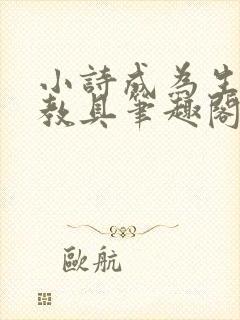 小詩成為生
教具筆趣閣
歐航